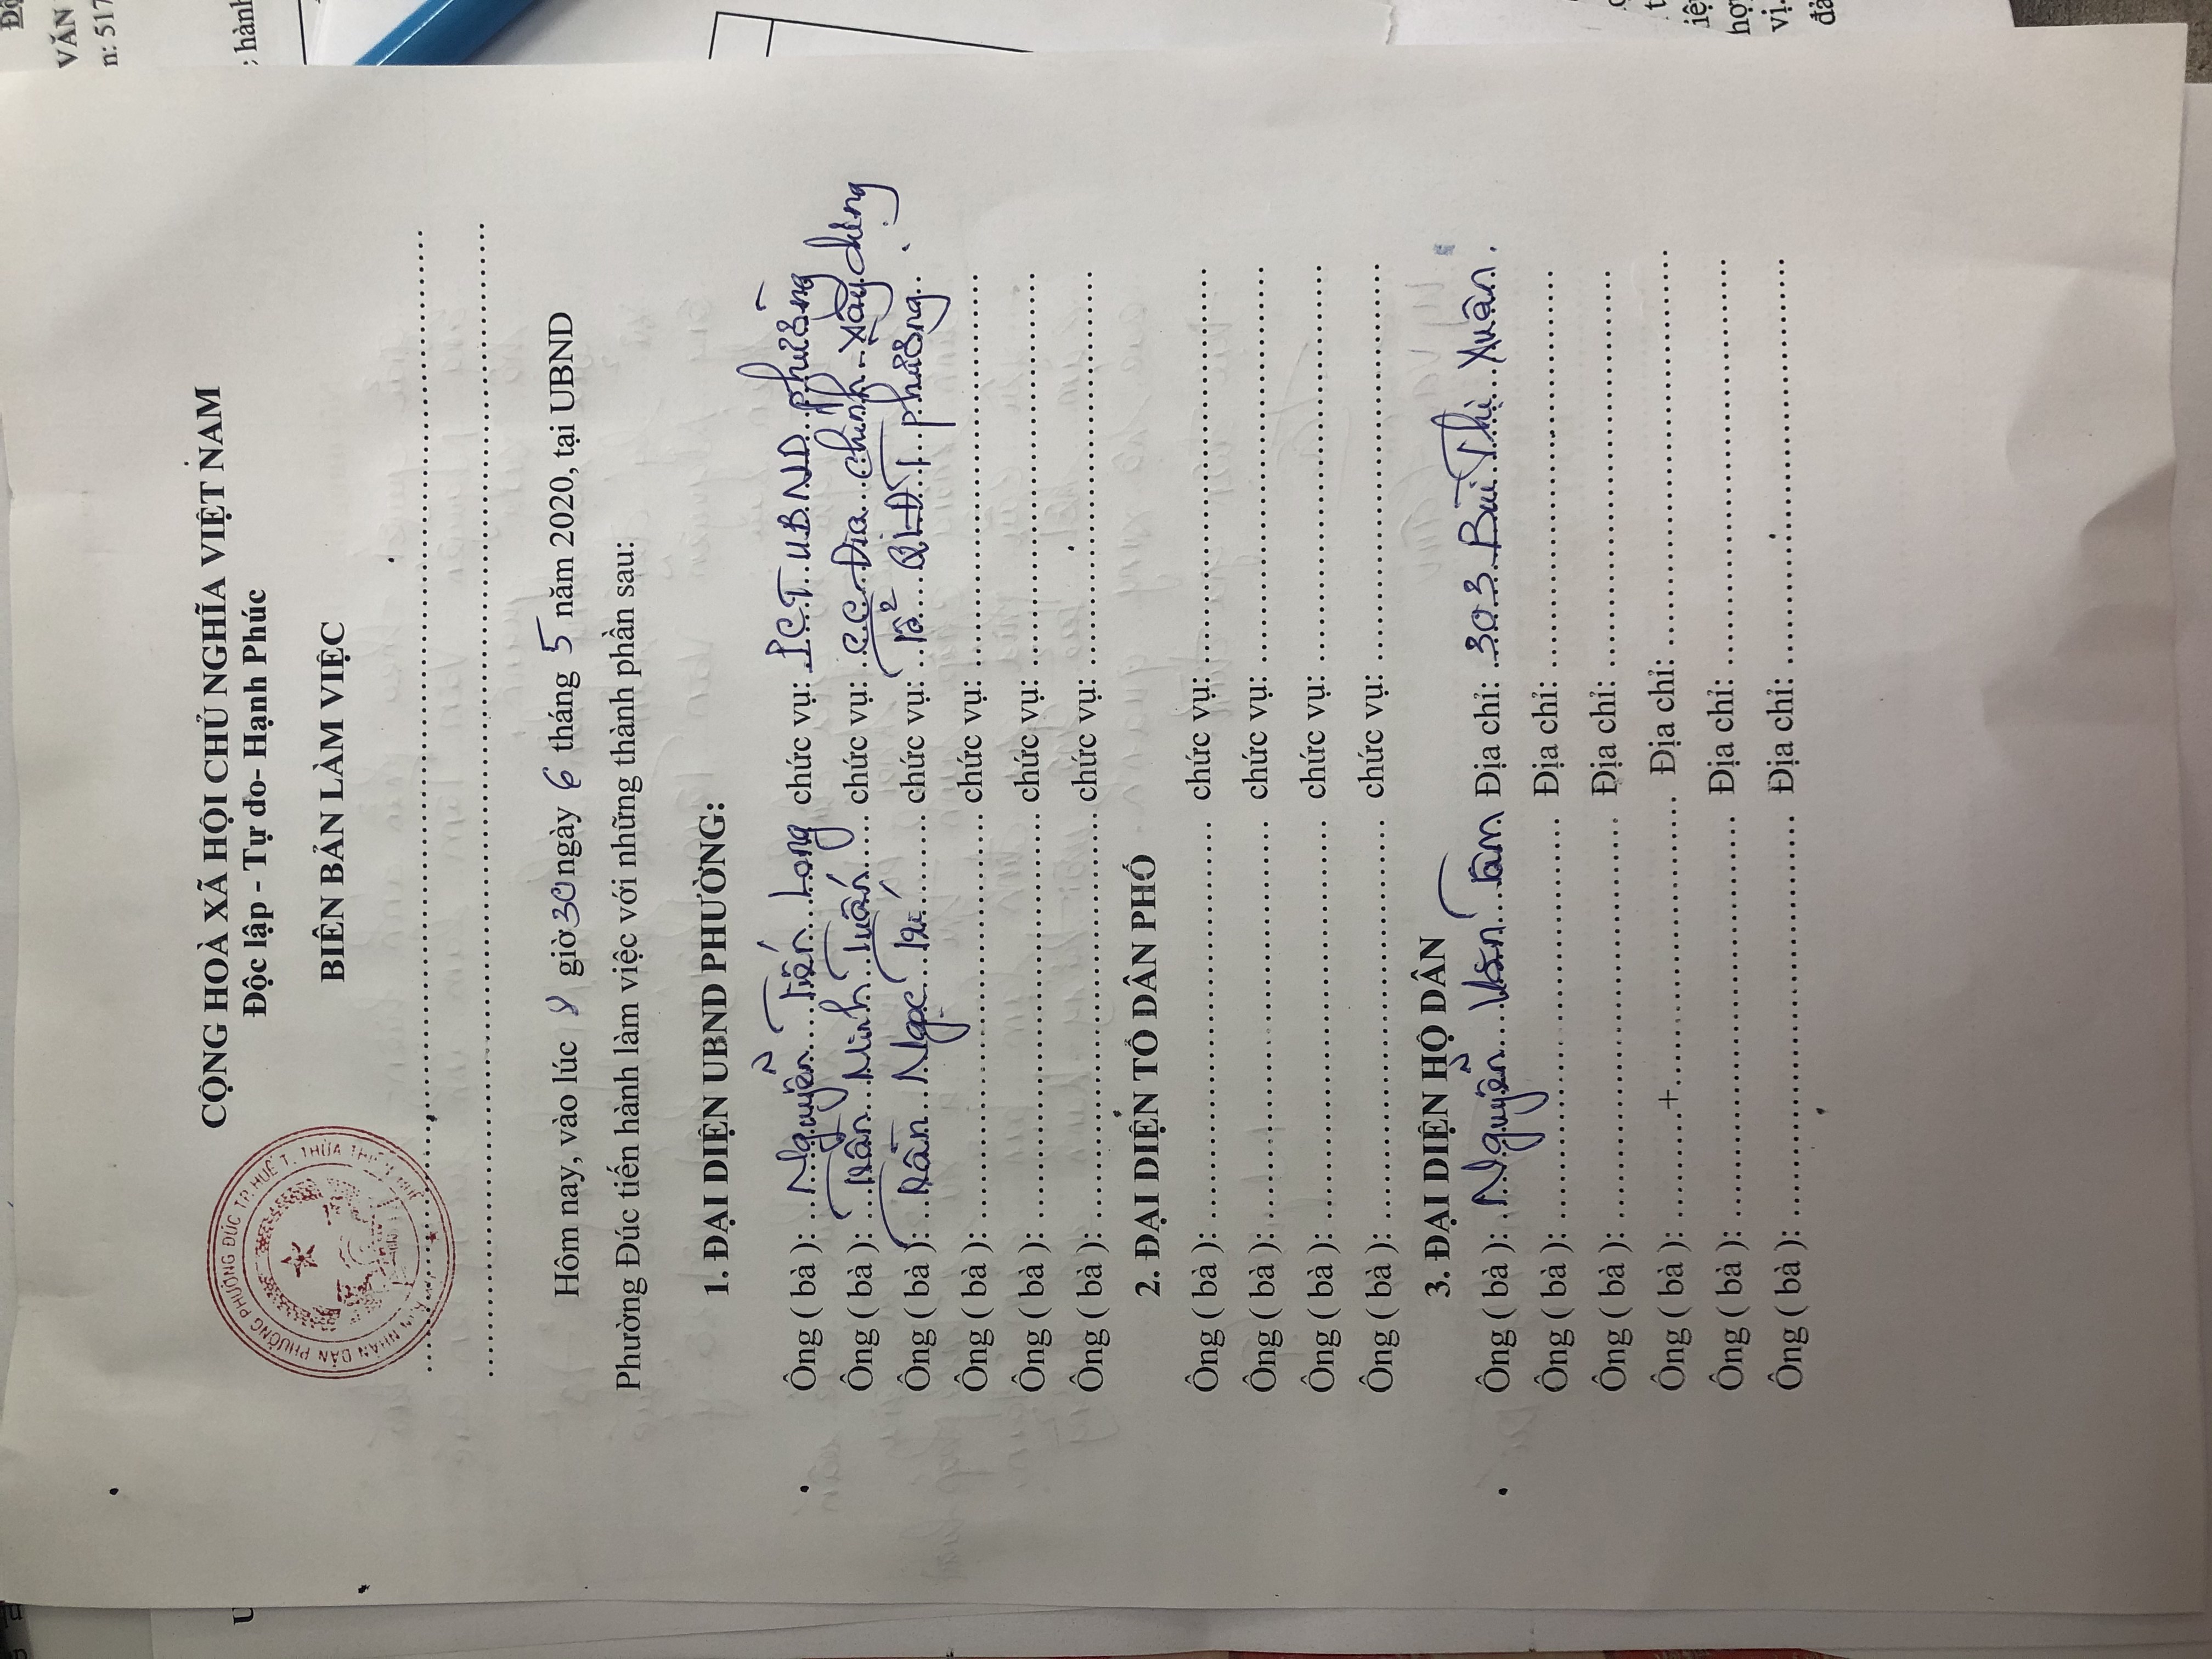 CỘNG HOÀ XÃ HỘI CHỦ NGHĨA VIỆT NAM
Độc lập - Tự do- Hạnh Phúc
BIÊN BẢN LÀM VIỆC
NHÂN DÂN PHƯỜNG PHƯỜNG ĐÚC TP.HUẾ T. THỪA THIÊN HUẾ
Hôm nay, vào lúc giờ 30 ngày 6 tháng 5 năm 2020, tại UBND
Phường Đúc tiến hành làm việc với những thành phần sau:
1. ĐẠI DIỆN UBND PHƯỜNG:
Ông ( bà ): Nguyễn Tiến Long chức vụ: P.CT UBND phường
Ông ( bà ): Trần Minh Tuấn chức vụ: CC Địa chính - xây dựng
Ông ( bà ): Trần Ngọc Tú chức vụ: Tổ QLĐT phường
Ông ( bà ): chức vụ:
Ông ( bà ): chức vụ:
Ông ( bà ): chức vụ:
2. ĐẠI DIỆN TỔ DÂN PHỐ
Ông ( bà ): chức vụ:
Ông ( bà ): chức vụ:
Ông ( bà ): chức vụ:
Ông ( bà ): chức vụ:
3. ĐẠI DIỆN HỘ DÂN
Ông ( bà ): Nguyễn Văn Tâm Địa chỉ: 303 Bùi Thị Xuân.
Ông ( bà ): Địa chỉ:
Ông ( bà ): Địa chỉ:
Ông ( bà ): Địa chỉ:
Ông ( bà ): Địa chỉ:
Ông ( bà ): Địa chỉ:
VĂN
n: 517
; hành